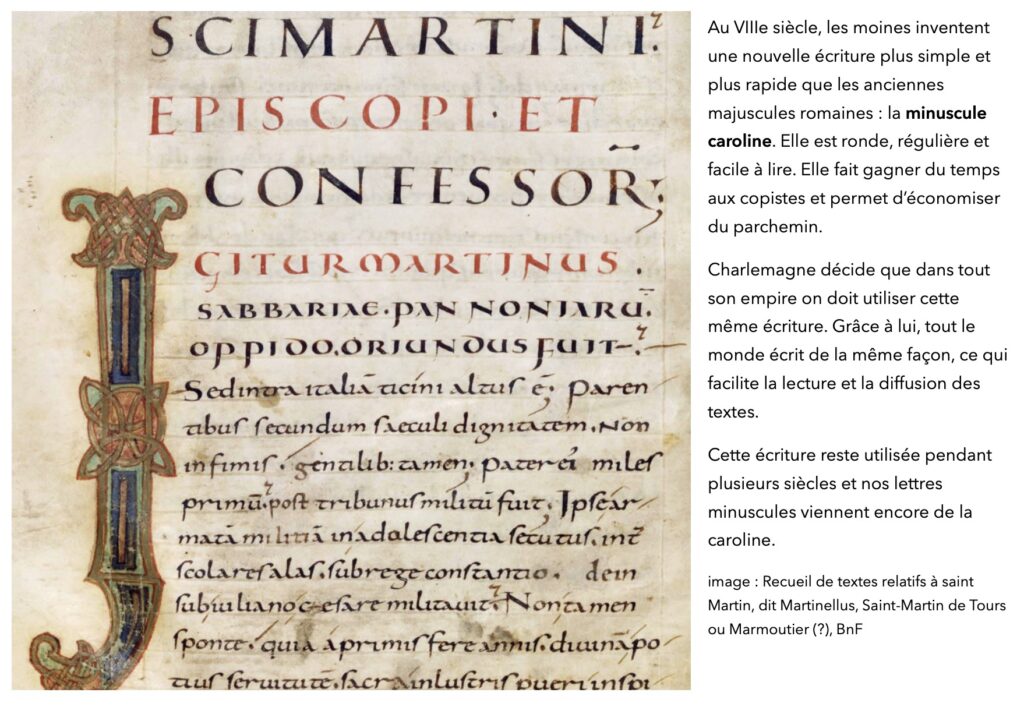 SCI MARTINI.
EPISCOPI · ET
CONFESSOR;
GITUR MARTINUS.
SABBARIAE · PANNONIARŪ.
OPPIDO. ORIUNDUS FUIT.
Sed intra italiā ticini altus ē. Paren
tibus secundum saeculi dignitatem. Non
infimis. gentilib: tamen. Pater ei miles
primū. post tribunus militū fuit. Ipse ar
matā militiā in adolescentia secutus. int
scolares alas. sub rege constantio. dein
sub iuliano cesare militauit. Non tamen
sponte. quia a primis fere annis. diuinā po
tius seruitutē. sacra inlustris pueri inspi
Au VIIIe siècle, les moines inventent
une nouvelle écriture plus simple et
plus rapide que les anciennes
majuscules romaines : la minuscule
caroline. Elle est ronde, régulière et
facile à lire. Elle fait gagner du temps
aux copistes et permet d’économiser
du parchemin.
Charlemagne décide que dans tout
son empire on doit utiliser cette
même écriture. Grâce à lui, tout le
monde écrit de la même façon, ce qui
facilite la lecture et la diffusion des
textes.
Cette écriture reste utilisée pendant
plusieurs siècles et nos lettres
minuscules viennent encore de la
caroline.
image : Recueil de textes relatifs à saint
Martin, dit Martinellus, Saint-Martin de Tours
ou Marmoutier (?), BnF